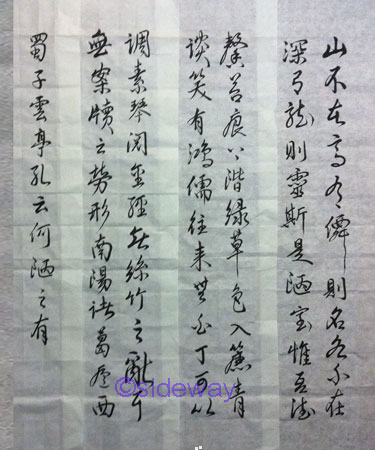 山不在高有僊則名水不在
深有龍則靈斯是陋室惟吾德
馨苔痕上階綠草色入簾青
談笑有鴻儒往來無白丁可以
調素琴閱金經無絲竹之亂耳
無案牘之勞形南陽諸葛廬西
蜀子雲亭孔云何陋之有
©sideway